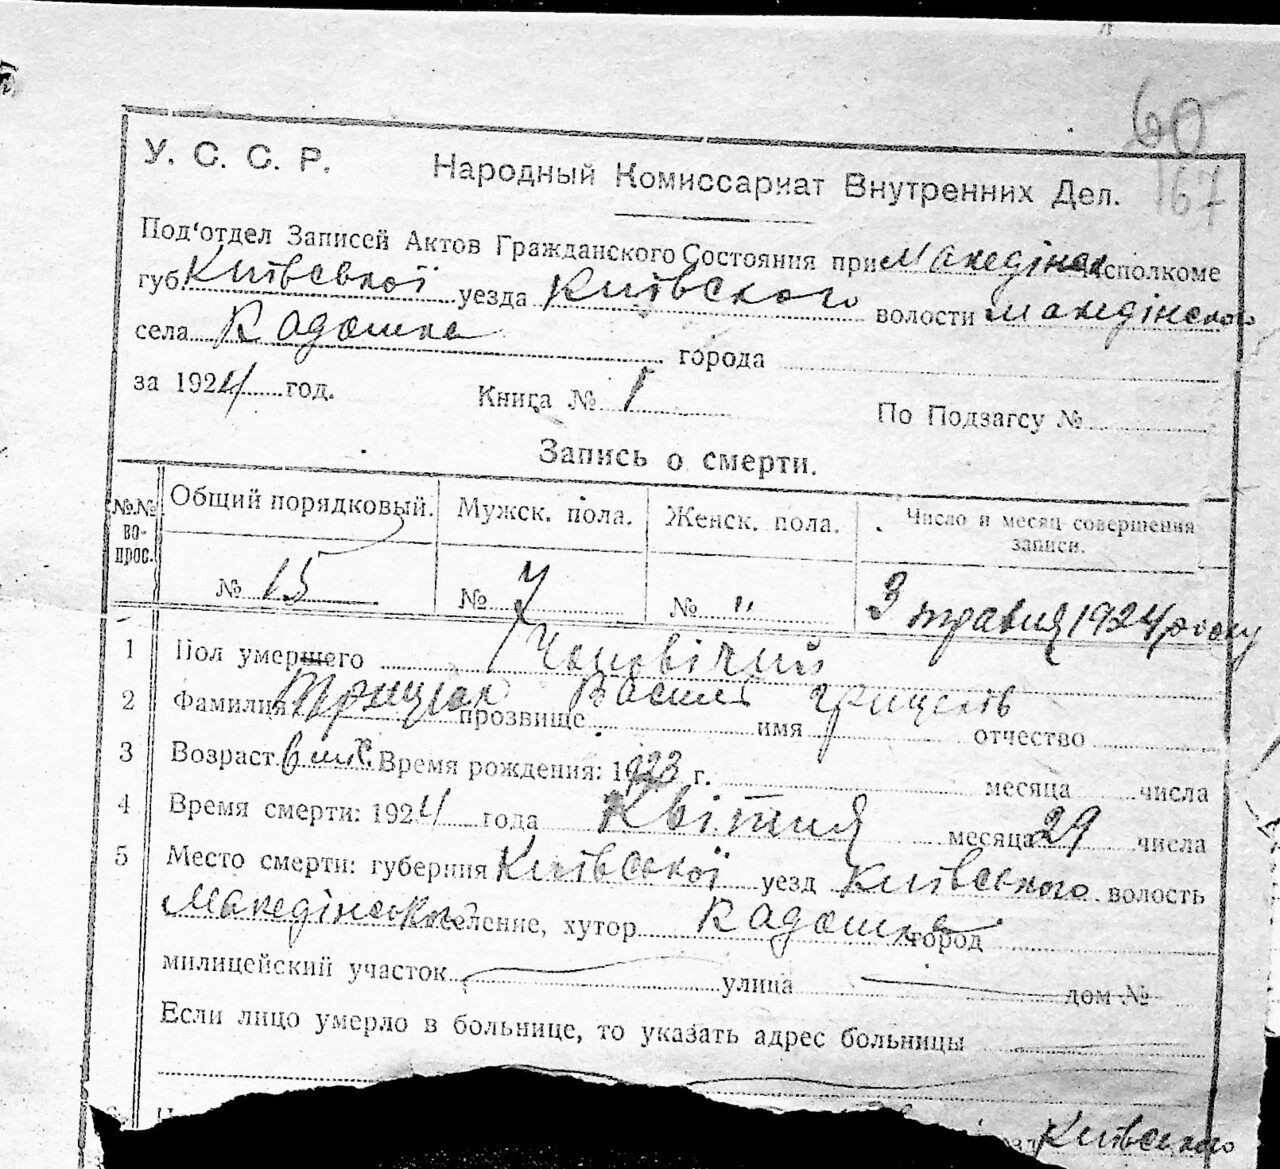 60
167
У. С. С. Р. Народный Комиссариат Внутренних Дел.
Под'отдел Записей Актов Гражданского Состояния при Македінск исполкоме
губ. Київської уезда Київского волости Македінского
села Кадомка города
за 1924 год. Книга № 1 По Подзагсу №
Запись о смерти.
№№ вопрос. Общий порядковый. Мужск. пола. Женск. пола. Число и месяц совершения записи.
№ 15 № 7 № " 3 травня 1924 року
1 Пол умершего Чоловічий
2 Фамилия прозвище Василь имя Грицьків отчество
3 Возраст 6 міс. Время рождения: 1923 г. месяца числа
4 Время смерти: 1924 года Квітня месяца 29 числа
5 Место смерти: губерния Київської уезд Київського волость
Македінської селение, хутор Кадомка город
милицейский участок улица дом №
Если лицо умерло в больнице, то указать адрес больницы
Київского